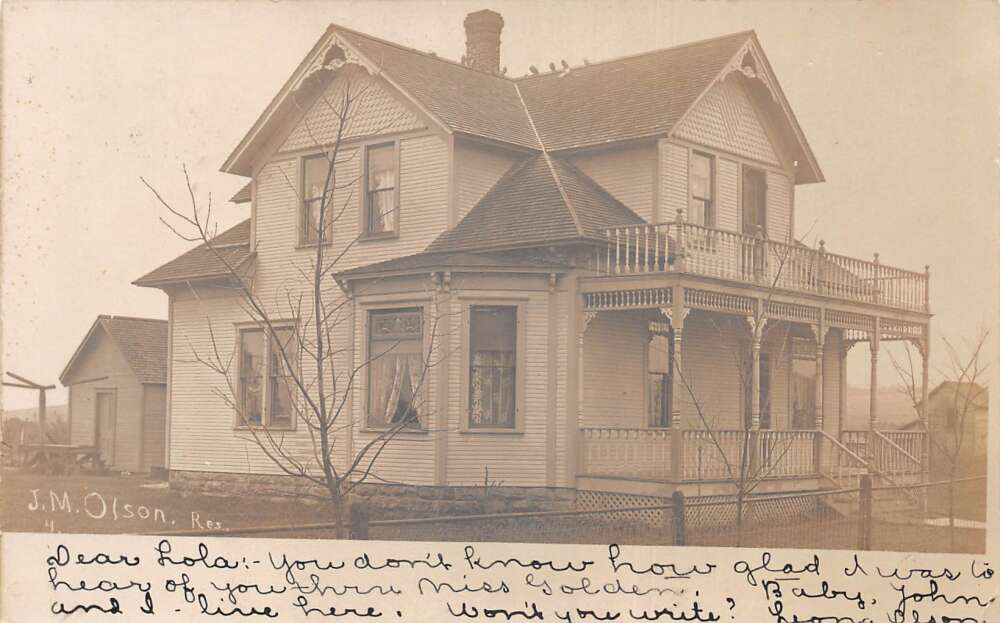 J.M. Olson. Res.
4.
Dear Lola:- You don't know how glad I was to
hear of you thru Miss Golden. Baby, John
and I - live here. Won't you write? Leona Olson